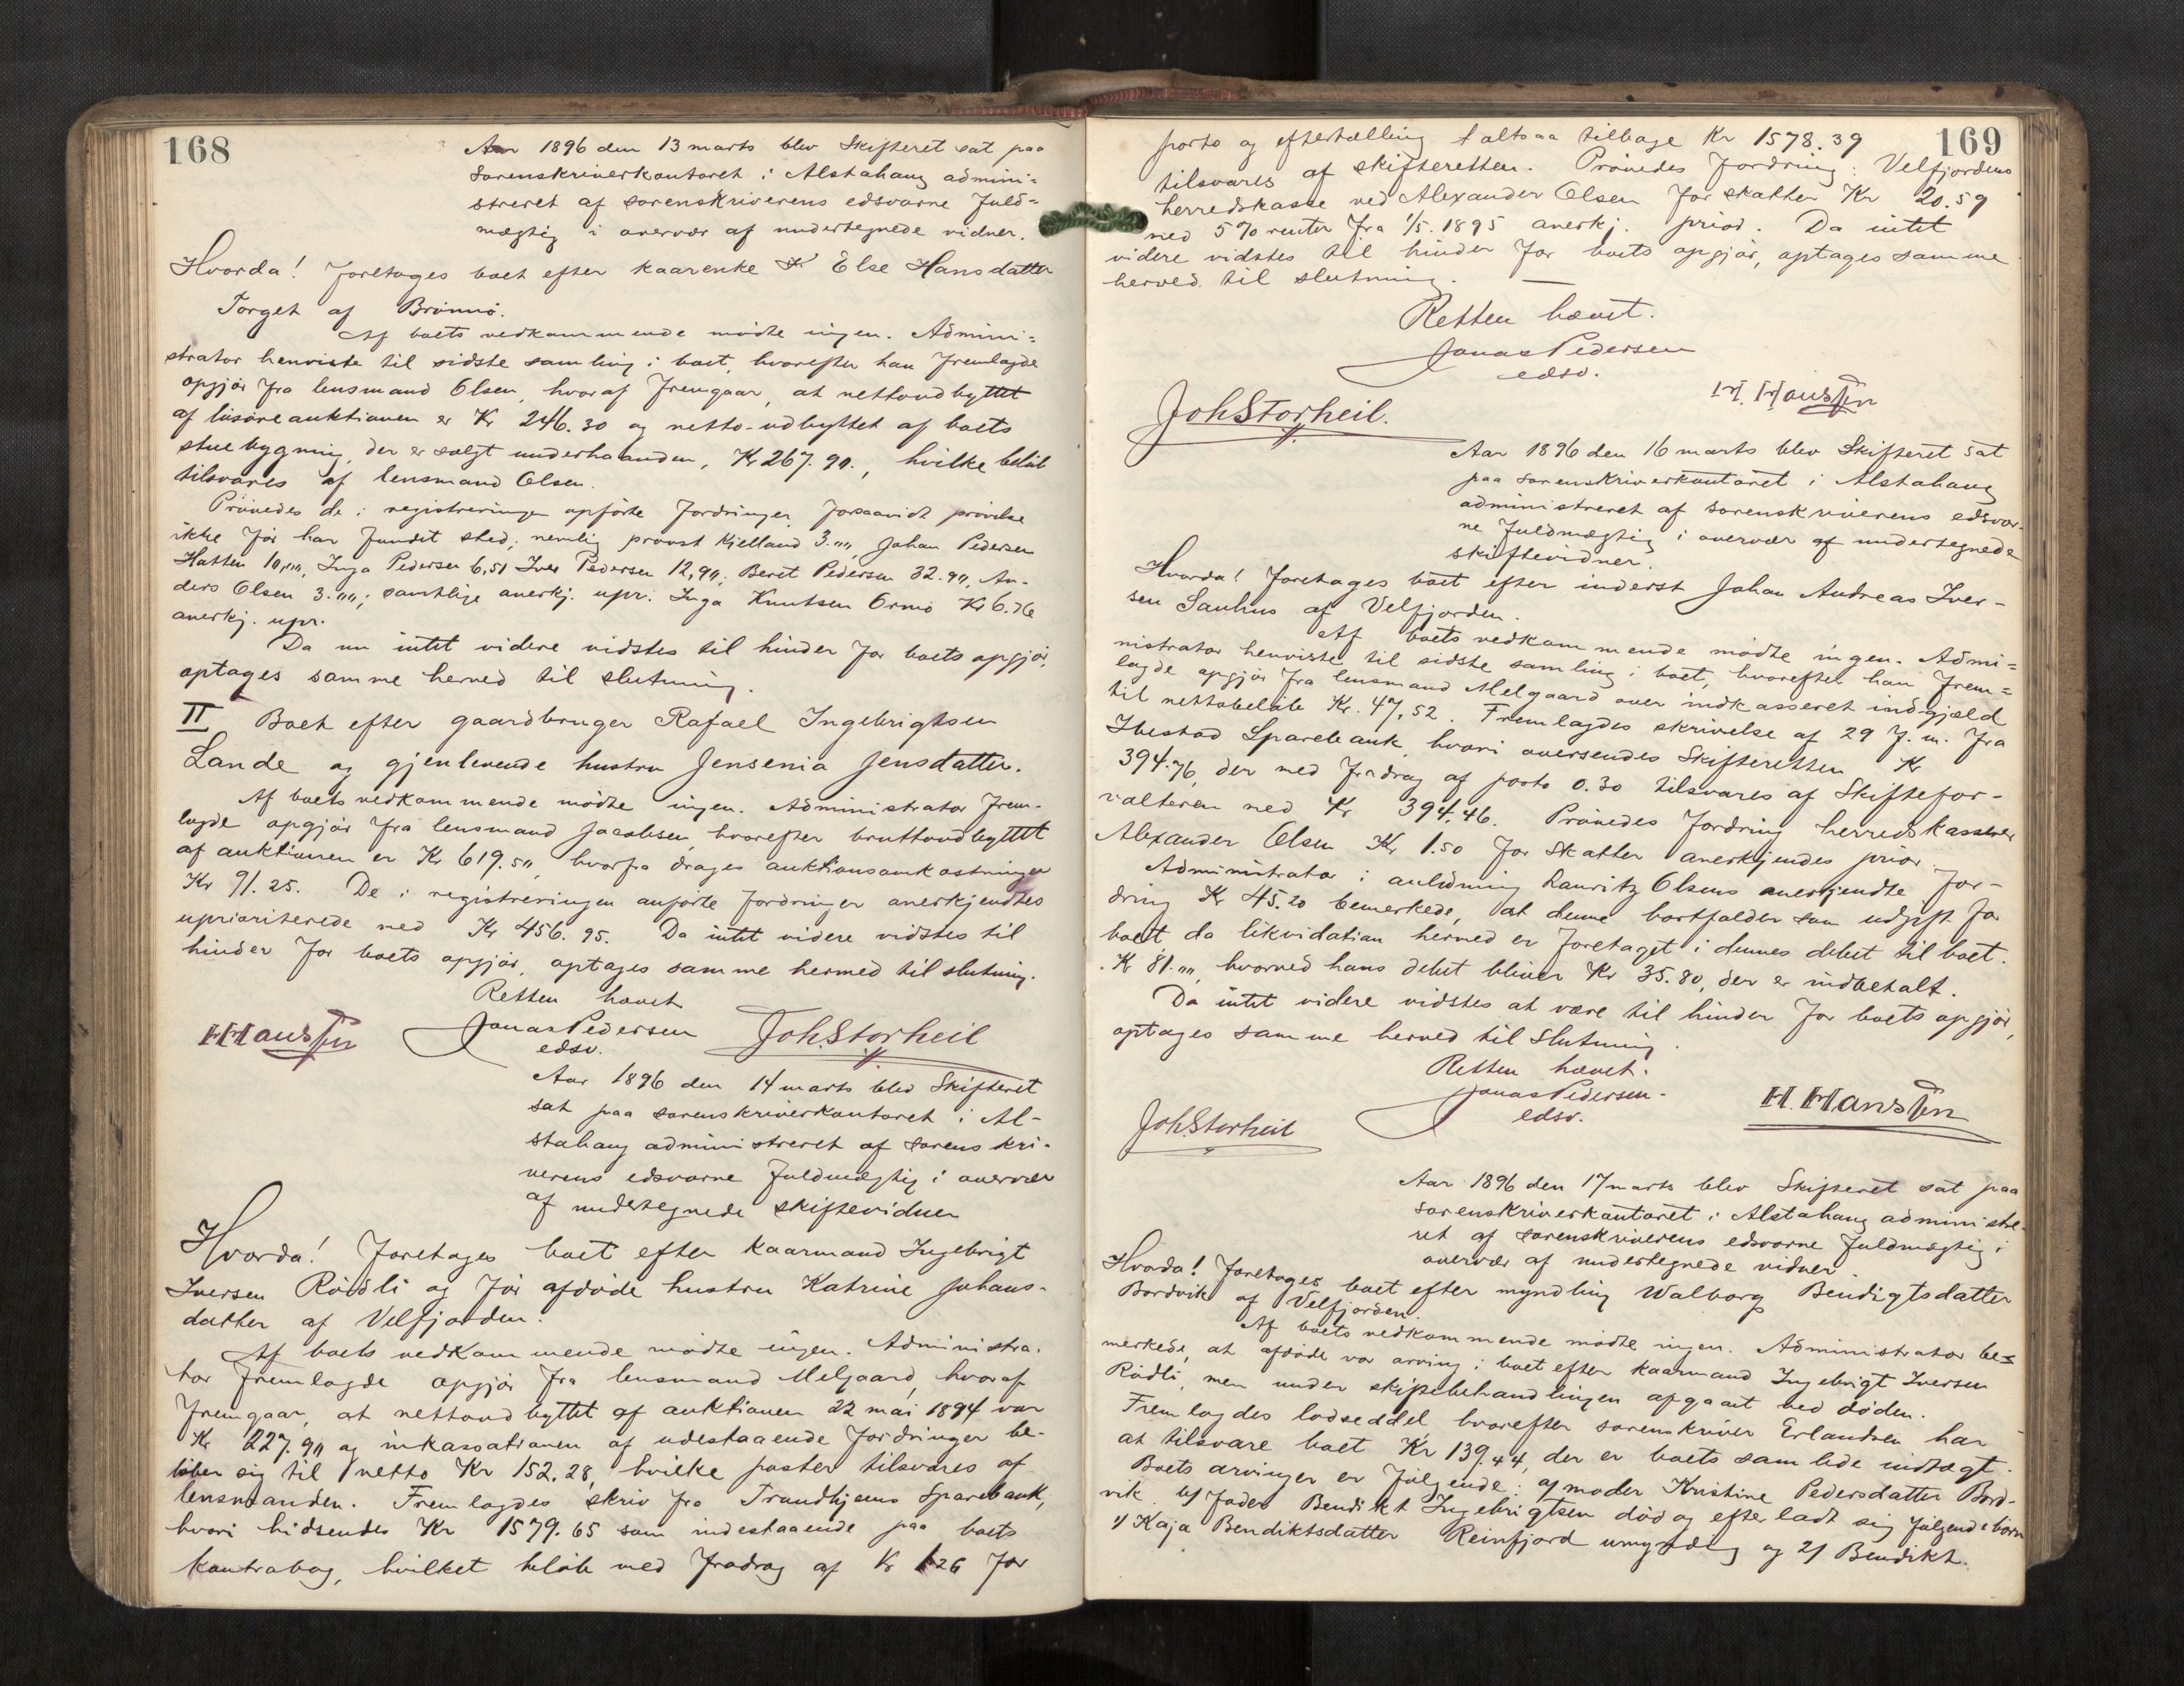 168
Aar 1896 den 13 marts blev Skifteret sat paa
sorenskriverkontoret i Alstahaug admini=
streret af sorenskriverens edsvorne Fuld=
mægtig i overvær af undertegnede vidner.
Hvorda! Foretoges boet efter kaarenke Else Hansdatter
Torget af Brønnø.
Af boets vedkommende mødte ingen. Admini=
strator henviste til sidste samling i boet, hvorefter han fremlagde
opgjør fra lensmand Olsen, hvoraf fremgaar, at nettoudbyttet
af løsøreauktionen er Kr 246.30 og netto-udbyttet af boets
stuebygning, der er solgt underhaanden, Kr 267.90., hvilke beløb
tilsvares af lensmand Olsen.
Prøvedes de i registreringen opførte Fordringer, forsaavidt prøvelse
ikke før har fundet sted; nemlig provst Kjelland 3."", Johan Pedersen
Hatten 10,"", Inga Pedersen 6,51 Iver Pedersen 12,90, Berit Pedersen 32.90, An-
ders Olsen 3.""; samtlige anerkj. upr. Inga Knutsen Ormø Kr 6.76
anerkj. upr.
Da nu intet videre vidstes til hinder for boets opgjør,
optages samme herved til slutning.
II Boet efter gaardbruger Rafael Ingebrigtsen
Lande og gjenlevende hustru Jensenia Jensdatter.
Af boets vedkommende mødte ingen. Administrator frem-
lagde opgjør fra lensmand Jacobsen, hvorefter bruttoudbyttet
af auktionen er Kr 619.50, hvorfra drages auktionsomkostninger
Kr 91.25. De i registreringen anførte Fordringer anerkjendtes
uprioriterede med Kr 456.95. Da intet videre vidstes til
hinder for boets opgjør, optages samme hermed til slutning.
Retten hævet
Jonas Pedersen
edsv.
H Hansen
Joh Storheil
Aar 1896 den 14 marts blev Skifteret
sat paa sorenskriverkontoret i Al-
stahaug administreret af sorenskri-
verens edsvorne Fuldmægtig i overvær
af undertegnede skiftevidner
Hvorda! Foretoges boet efter kaarmand Ingebrigt
Iversen Rødli og før afdøde hustru Katrine Johans-
datter af Velfjorden.
Af boets vedkommende mødte ingen. Administra-
tor fremlagde opgjør fra lensmand Melgaard, hvoraf
fremgaar, at nettoudbyttet af auktionen 22 mai 1894 var
Kr 227.90 og inkassationen af udestaaende Fordringer be-
løber sig til netto Kr 152.28, hvilke poster tilsvares af
lensmanden. Fremlagdes skriv fra Trondhjems Sparebank,
hvori hidsendes Kr 1579.65 som indestaaende paa boets
kontrabog, hvilket beløb med Fradrag af Kr 1.26 for
169
porto og eftertælling altsaa tilbage Kr 1578.39
tilsvares af skifteretten. Prøvedes Fordring: Velfjordens
herredskasse ved Alexander Olsen for skatter Kr 20.59
med 5% renter fra 1/5.1895 anerkj. prior. Da intet
videre vidstes til hinder for boets opgjør, optages samme
herved til slutning.
Retten hævet.
Jonas Pedersen
edsv.
H. Hansen
Joh Storheil.
Aar 1896 den 16 marts blev Skifteret sat
paa sorenskriverkontoret i Alstahaug
administreret af sorenskriverens edsvor-
ne Fuldmægtig i overvær af undertegnede
skiftevidner.
Hvorda! Foretoges boet efter inderst Johan Andreas Iver-
sen Sauhus af Velfjorden.
Af boets vedkommende mødte ingen. Admi=
nistrator henviste til sidste samling i boet, hvorefter han frem=
lagde opgjør fra lensmand Melgaard over indkasseret indgjæld
til nettobeløb Kr. 47,52. Fremlagdes skrivelse af 29 f. m. fra
Ibestad Sparebank, hvori oversendes Skifteretten Kr
394.76, der med fradrag af porto 0.30 tilsvares af Skiftefor-
valteren med Kr 394.46. Prøvedes Fordring herredskasserer
Alexander Olsen Kr 1.50 for skatter anerkjendes prior.
Administrator i anledning Lauritz Olsens anerkjendte For-
dring Kr 45.20 bemerkede, at denne bortfalder som udgift for
boet, da likvidation herved er foretaget i dennes debet til boet.
Kr 81."" hvorved hans debet bliver Kr 35.80, der er indbetalt.
Da intet videre vidstes at være til hinder for boets opgjør,
optages samme herved til slutning.
Retten hævet.
Jonas Pedersen.
edsv.
Joh. Storheil
H. Hansen
Aar 1896 den 17 marts blev Skifteret sat paa
sorenskriverkontoret i Alstahaug administre-
ret af sorenskriverens edsvorne Fuldmægtig i
overvær af undertegnede vidner
Hvorda! Foretoges boet efter myndling Walborg Bendigtsdatter
Bordvik af Velfjorden.
Af boets vedkommende mødte ingen. Administrator be=
merkede, at afdøde var arving i boet efter kaarmand Ingebrigt Iversen
Rødli, men under skiftebehandlingen afgaaet ved døden.
Fremlagdes lodseddel, hvorefter sorenskriver Erlandsen har
at tilsvare boet Kr 139.44, der er boets samlede indtægt.
Boets arvinger er følgende: a/ moder Kristine Pedersdatter Bord-
vik b/ Fader Bendikt Ingebrigtsen død og efterladt sig følgende børn
1/ Kaja Bendiktsdatter Reinfjord umyndig og 2/ Bendikt.